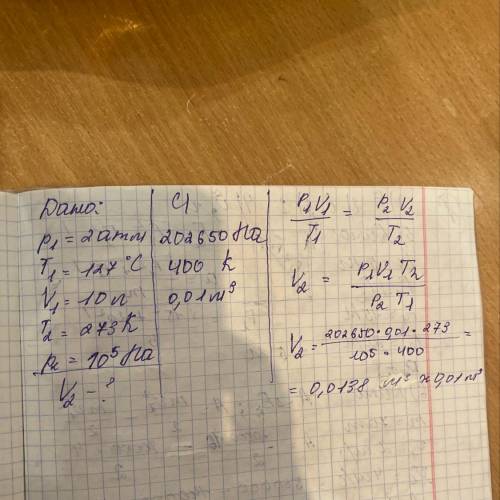 Дано:
p₁ = 2 атм
T₁ = 127 °C
V₁ = 10 л
T₂ = 273 К
p₂ = 10⁵ Па
V₂ - ?
СИ
202650 Па
400 К
0,01 м³
P₁V₁ / T₁ = P₂ V₂ / T₂
V₂ = P₁V₁T₂ / P₂ T₁
V₂ = 202650 · 0,01 · 273 / 10⁵ · 400 =
= 0,0138 м³ ≈ 0,01 м³